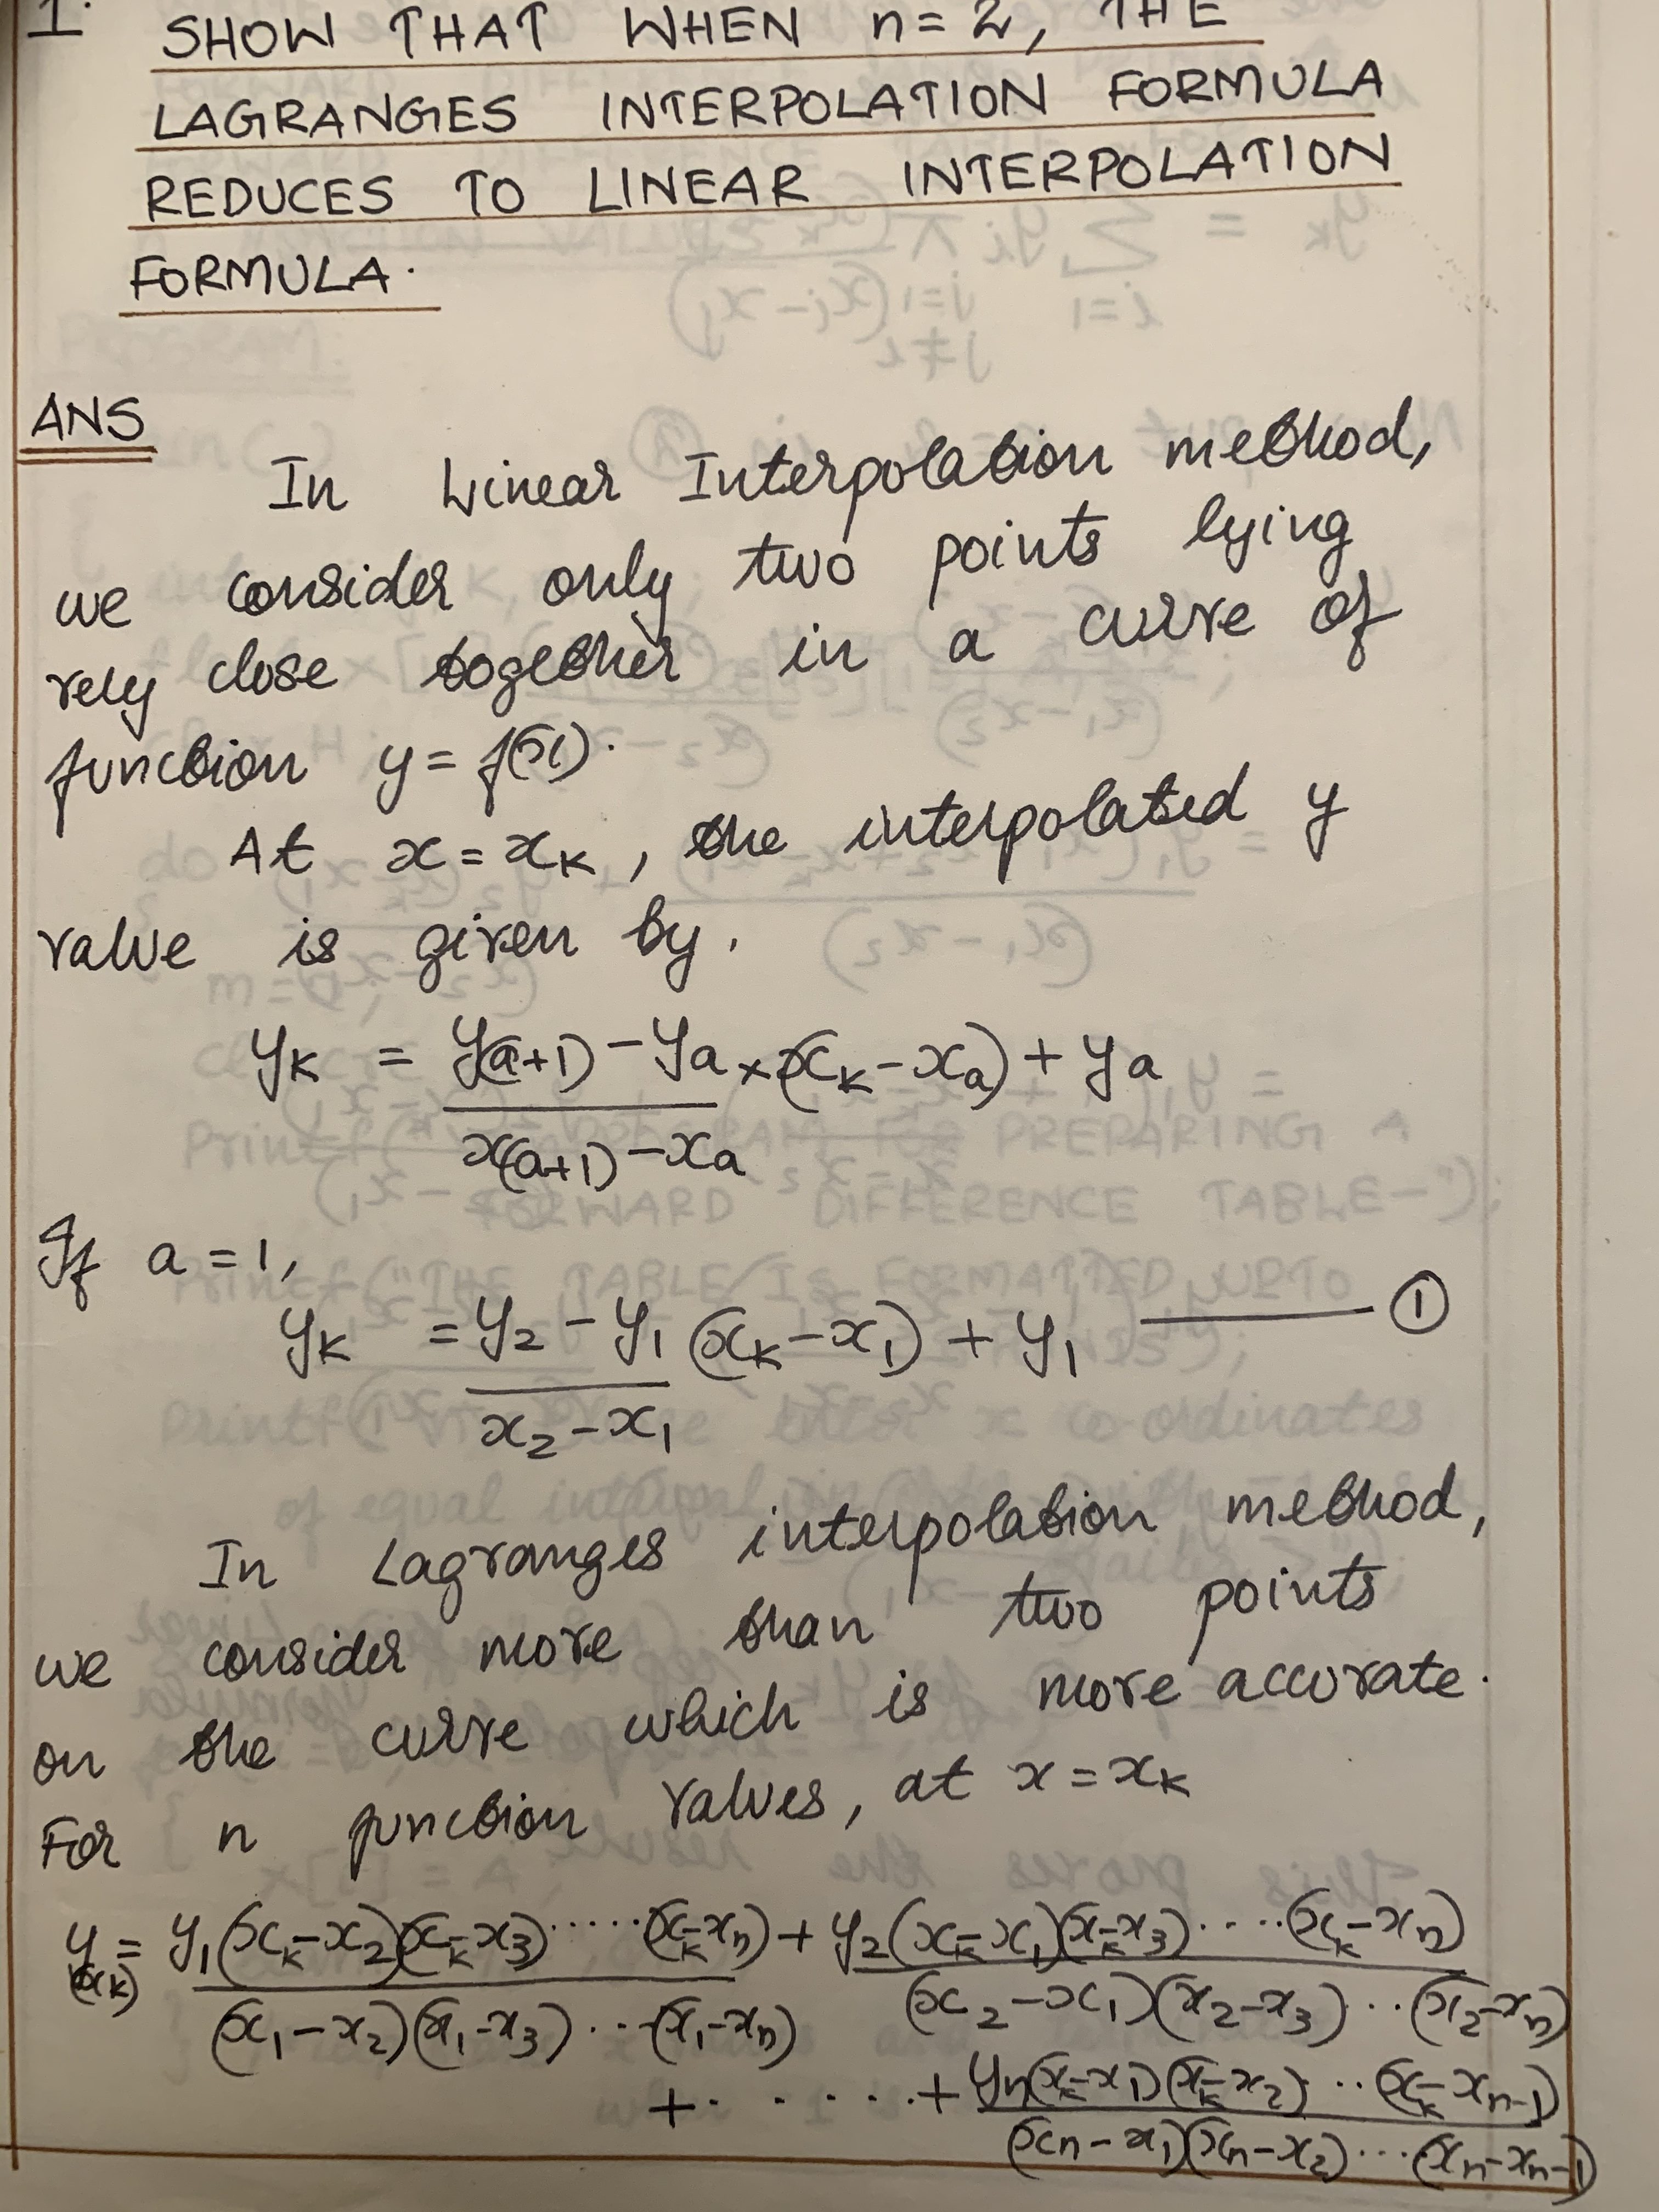 1. SHOW THAT WHEN n = 2, THE
LAGRANGES INTERPOLATION FORMULA
REDUCES TO LINEAR INTERPOLATION
FORMULA.
ANS
In Linear Interpolation method,
we consider only two points lying
very close together in a curve of
function y = f(x).
At x = xₖ, the interpolated y
value is given by.
yₖ = (y(a+1) - yₐ)/(x(a+1) - xₐ) × (xₖ - xₐ) + yₐ
If a = 1,
yₖ = (y₂ - y₁)/(x₂ - x₁) (xₖ - x₁) + y₁ ——— ①
In Lagranges interpolation method,
we consider more than two points
on the curve which is more accurate.
For n function values, at x = xₖ
y(xₖ) = y₁(xₖ-x₂)(xₖ-x₃).....(xₖ-xₙ)/(x₁-x₂)(x₁-x₃)...(x₁-xₙ) + y₂(xₖ-x₁)(xₖ-x₃)....(xₖ-xₙ)/(x₂-x₁)(x₂-x₃)..(x₂-xₙ)
+ . . . . . + yₙ(xₖ-x₁)(xₖ-x₂)..(xₖ-xₙ₋₁)/(xₙ-x₁)(xₙ-x₂)...(xₙ-xₙ₋₁)